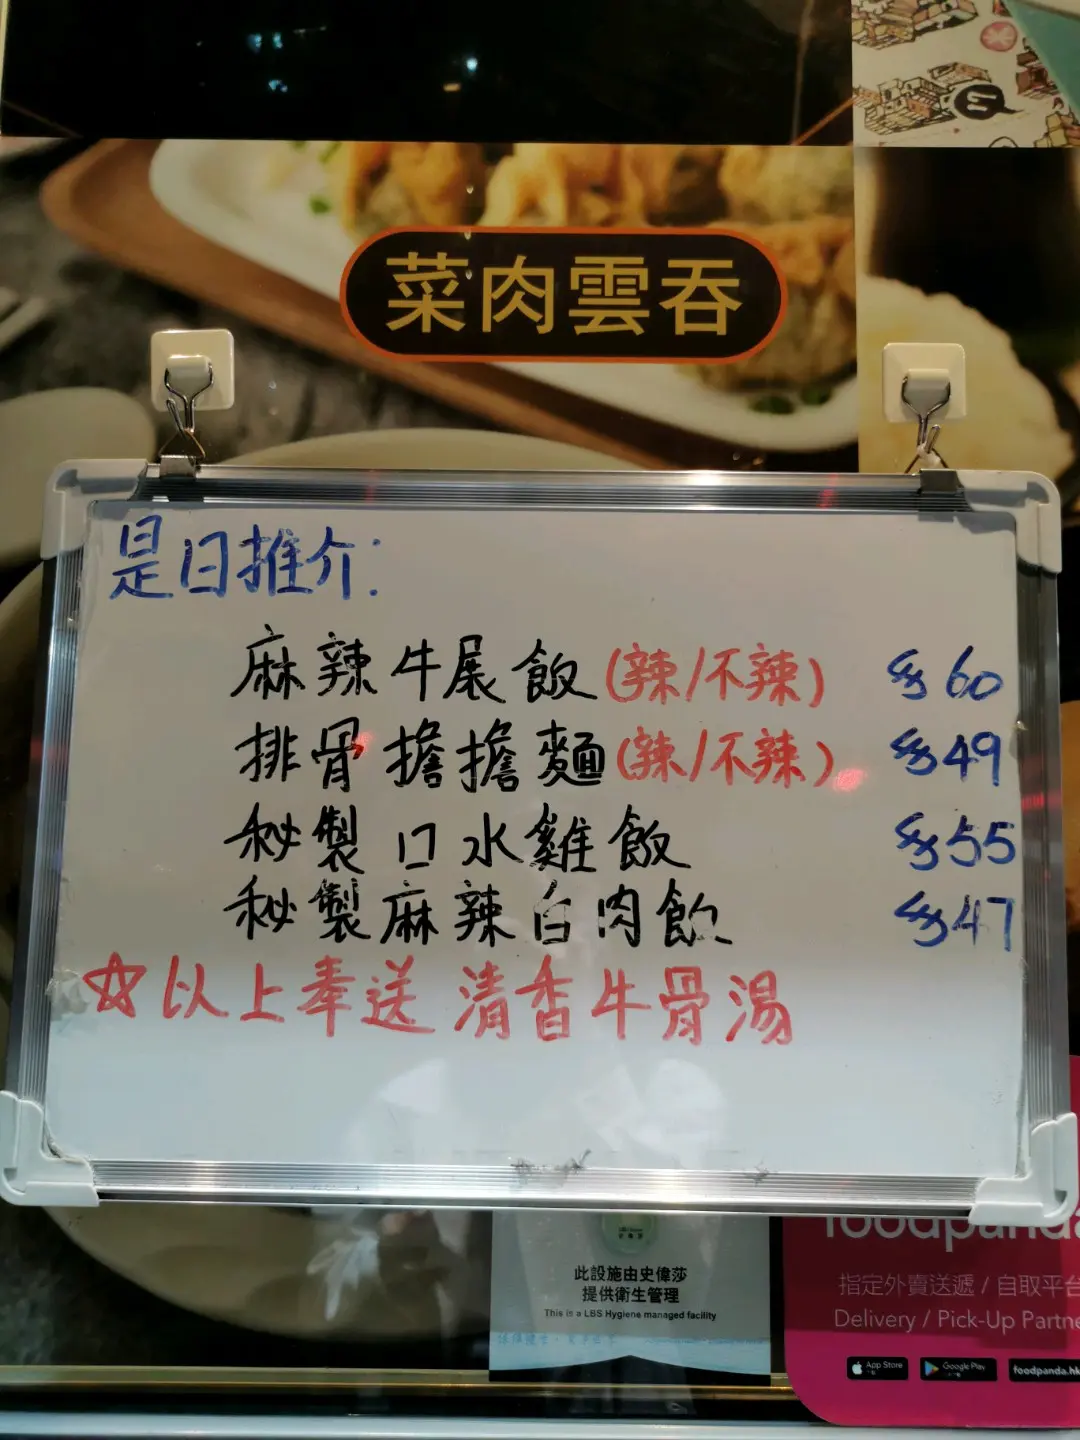 菜肉雲吞
是日推介:
麻辣牛展飯(辣/不辣) $60
排骨擔擔麵(辣/不辣) $49
秘製口水雞飯 $55
秘製麻辣白肉飯 $47
☆以上奉送清香牛骨湯
此設施由史偉莎
提供衛生管理
This is a LBS Hygiene managed facility
foodpanda
指定外賣送遞 / 自取平台
Delivery / Pick-Up Partne
App Store
Google Play
foodpanda.hk